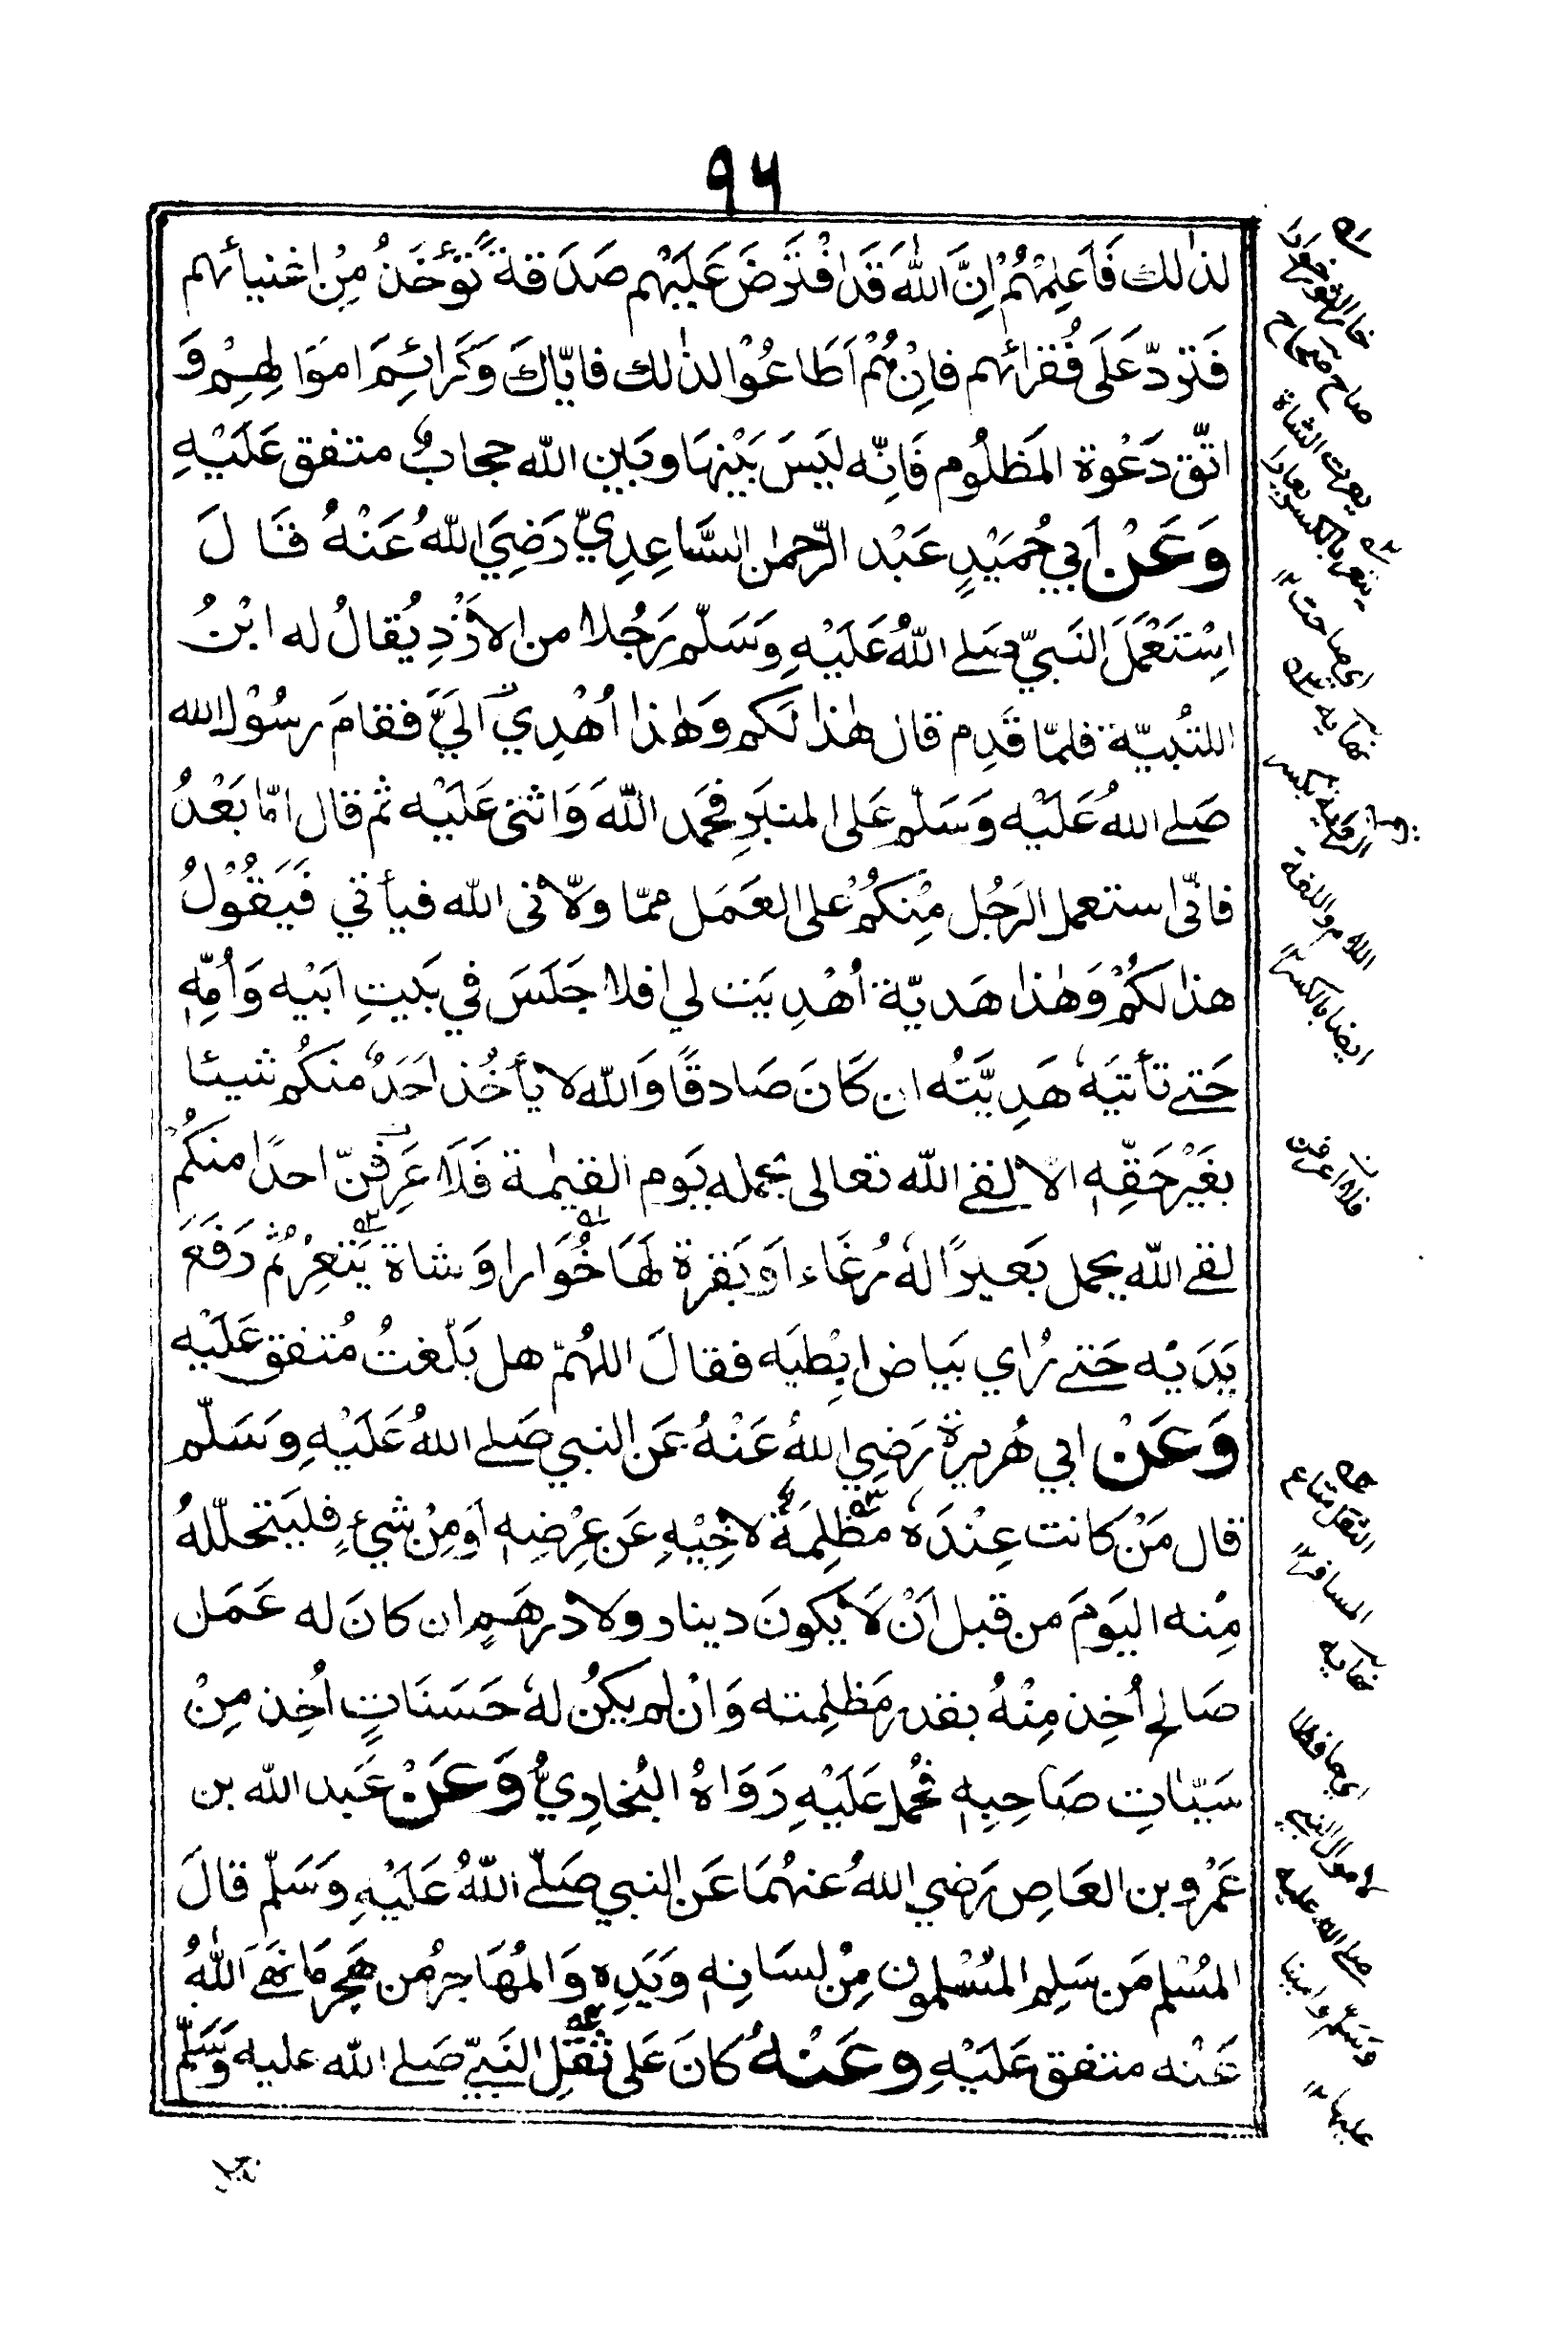 ٩٦
لذٰلك فَاَعلِمْهُمْ اِنَّ اللّٰهَ قَدَ افْتَرَضَ عَلَيْهم صَدَقة تُؤْخَذُ مِنْ اغنيائهم
فَتردّ عَلَى فُقرائهم فاِنْ هُمْ اَطَاعُوْا لذٰلك فايّاكَ وَكَرائِمَ امَوَالِهِمْ وَ
اتّق دَعْوة المَظلُوم فَاِنّه ليَسَ بَيْنهَا وبَين الله حجابٌ متفق عَلَيْهِ
وَعَنْ اَبي حُمَيْدٍ عَبْد الرّحمٰن السَّاعِدِيّ رَضِيَ اللهُ عَنْهُ قَالَ
اِسْتَعْمَلَ النَبيّ صَلے اللّٰهُ عَلَيْهِ وَسَلّم رَجُلا من الاَزْدِ يُقالُ له ابْنُ
اللتُبيّة فلمّا قَدِم قال هٰذا لَكم وَهٰذا اُهْدِيَ اليَّ فقامَ رسُوْل الله
صَلے اللهُ عَلَيْه وَسَلّم عَلى المنبَرِ فحَمِد اللّٰهَ وَاثنى عَلَيْه ثم قال امّا بَعْدُ
فانّى استعمل الرَجُل مِنكُمْ على العَمَل ممّا ولّانى الله فيأتي فَيَقُوْلُ
هذا لَكُمْ وَهٰذا هَديّة اُهْدِيَت لي افلا جَلَسَ في بَيتِ اَبيْه وَاُمِّهٖ
حَتے تأتيَهٗ هَدِيَّتُه ان كَانَ صَادقًا وَالله لا يأخُذ اَحَدٌ منكُم شيئا
بغَيْر حَقّهٖ الا لقے الله تعالى يحمله يَوم القيٰمة فَلَا عَرِفَنّ احدًا منكُمْ
لقے اللّٰه يحمل بَعيرًا لهٗ رُغَاء اَو بَقرة لهَا خُوَار اوَ شاة يَتعِرُ ثُمّ رَفَعَ
يَدَيْه حَتے رُاي بَياض ابِطيَه فقالَ اللهُمّ هل بَلّغتُ مُتفق عَلَيْه
وَعَنْ ابي هُريرة رَضِي اللهُ عَنْهُ عَن النبي صَلے اللهُ عَلَيْهِ وسَلّم
قال مَنْ كانت عِنْدَهٗ مَظلِمَةٌ لاَخِيْهِ عَن عِرْضِهٖ اَو مِنْ شيءٍ فليَتحلّلهُ
مِنه اليَومَ من قبل اَنْ لَا يكونَ دينار ولا درهَم ان كانَ له عَمَل
صَالح اُخِذ مِنْهُ بقدر مَظلِمته وَانْ لم يكنُ لهٗ حَسَنَاتٍ اُخِذ مِنْ
سَيّاٰتِ صَاحِبِهٖ فحُمل عَلَيْهِ رَوَاهُ البُخاريُّ وَعَنْ عَبد الله بن
عَمْرو بن العَاصِ رَضي اللهُ عنهُمَا عَن النبي صَلّے اللّٰهُ عَلَيْهِ وَسَلّم قالَ
المُسْلم مَن سَلِم المُسْلمون مِنْ لسَانِهٖ وَيَدِهٖ وَالمُهَاجرُ من هَجَر مَا نَهَے اللّٰهُ
عَنْه متفق عَلَيْهِ وعَنْهُ كَانَ عَلى ثَقَلِ النَبيّ صَلے الله عليه وَسَلّم
خار الثور خوارا
صاح صحاح
يعرت الشاة
يتعر بالكسر يعارا
اى صاحت ١٢
نهايه
بكسر
اللام واللغة
ايضا بالكسر ١٢
فلا اعرفن
الثقل متاع
المسافر ١٢
نهايه
اى حافظا
لاموال النبي
صلے الله عليه
وسلم وامينا
عليها ١٢